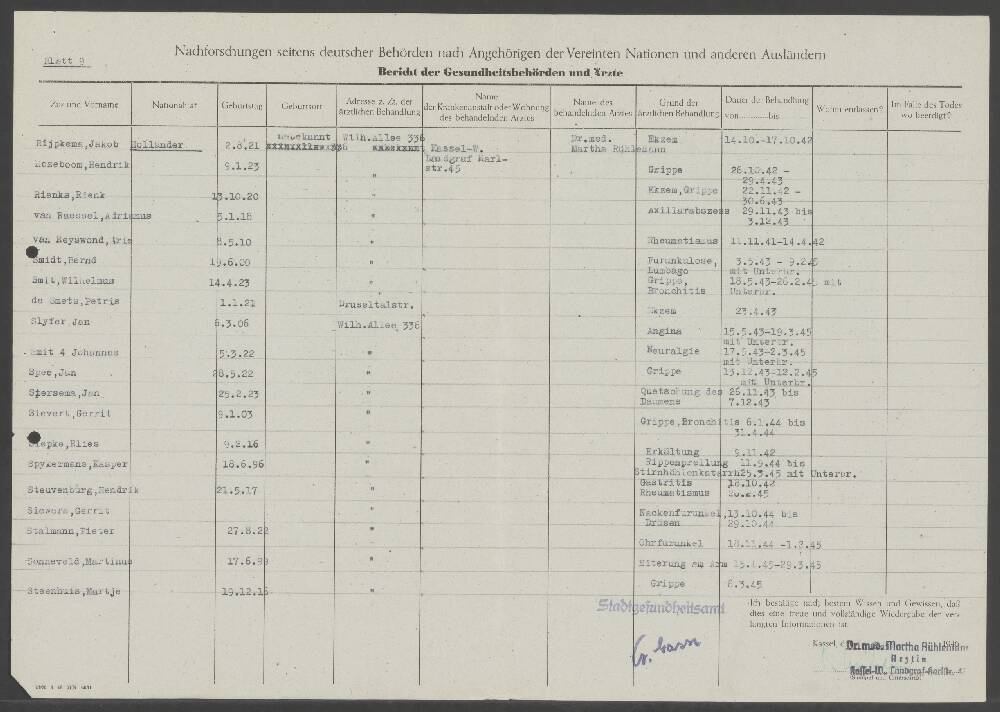 Nachforschungen seitens deutscher Behörden nach Angehörigen der Vereinten Nationen und anderen Ausländern
Blatt 9
Bericht der Gesundheitsbehörden und Ärzte
Zu- und Vorname Nationalität Geburtstag Geburtsort Adresse z. Zt. der ärztlichen Behandlung Name der Krankenanstalt oder Wohnung des behandelnden Arztes Name des behandelnden Arztes Grund der ärztlichen Behandlung Dauer der Behandlung von bis Wohin entlassen? Im Falle des Todes wo beerdigt?
Rijpkema, Jakob Holländer 2.8.21 unbekannt Wilh.Allee 336 Kassel-W. Landgraf Karl-str.45 Dr.med. Martha Rühlemann Ekzem 14.10.-17.10.42
Rozeboom, Hendrik 9.1.23 " Grippe 26.10.42 - 29.4.43
Rienks, Rienk 13.10.20 " Ekzem, Grippe 22.11.42 - 30.6.43
van Raessel, Adrianus 5.1.18 " Axillarabszess 29.11.43 bis 3.12.43
Van Reyswond, Aris 8.5.10 " Rheumatismus 11.11.41-14.4.42
Smidt, Bernd 19.6.00 " Furunkulose, Lumbago 3.5.43 - 9.2.45 mit Unterbr.
Smit, Wilhelmus 14.4.23 " Grippe, Bronchitis 18.5.43-26.2.45 mit Unterbr.
de Smets, Petris 1.1.21 Druseltalstr. Ekzem 23.4.43
Slyfer Jan 6.3.06 Wilh.Allee 336 Angina 15.5.43-19.3.45 mit Unterbr.
Smit 4 Johannes 5.3.22 " Neuralgie 17.5.43-2.3.45 mit Unterbr.
Spee, Jan 28.5.22 " Grippe 13.12.43-12.2.45 mit Unterbr.
Stersema, Jan 25.2.23 " Quetschung des Daumens 26.11.43 bis 7.12.43
Sievert, Gerrit 9.1.03 " Grippe, Bronchitis 6.1.44 bis 31.4.44
Siepke, Elies 9.2.16 " Erkältung 9.11.42
Spykermans, Kasper 18.6.96 " Rippenprellung 11.9.44 bis
Stirnhöhlenkatarrh 25.3.45 mit Unterbr.
Steuvenburg, Hendrik 21.5.17 " Gastritis 18.10.42
Rheumatismus
Siewers, Gerrit " Nackenfurunkel, Drüsen 13.10.44 bis 29.10.44
Stalmann, Pieter 27.8.22 " Ohrfurunkel 18.11.44 -1.2.45
Sonneveld, Martinus 17.6.98 " Eiterung am Arm 15.1.45-29.3.45
Steenhuis, Martje 19.12.16 " Grippe 6.3.45
Stadtgesundheitsamt
Ich bestätige nach bestem Wissen und Gewissen, daß
dies eine treue und vollständige Wiedergabe der ver-
langten Informationen ist.
Kassel,
Dr. med. Martha Rühlemann
Ärztin
Kassel-W., Landgraf-Karlstr. 45